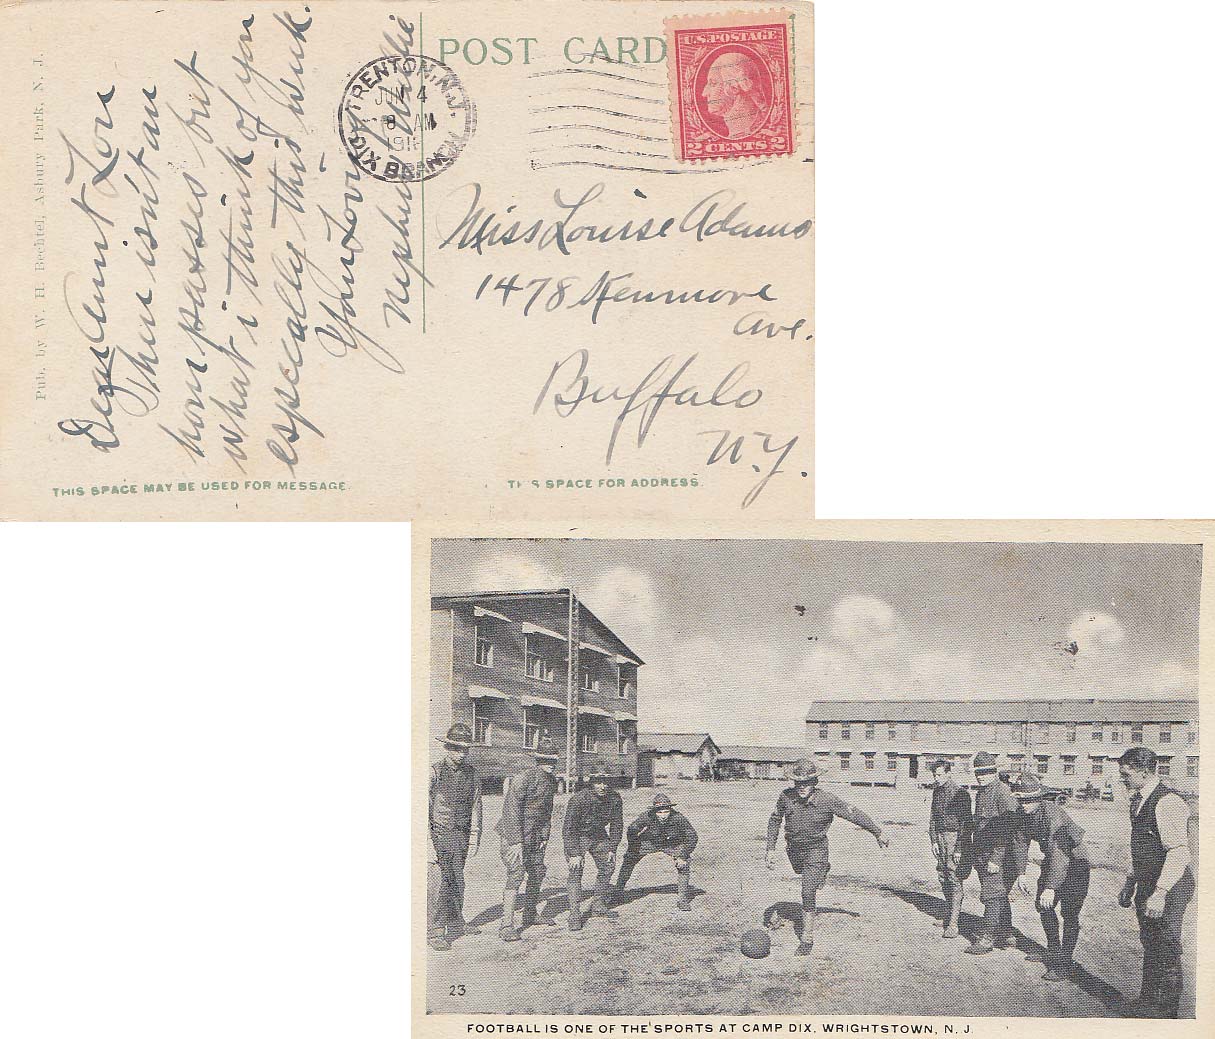 POST CARD
U.S. POSTAGE
2 CENTS 2
TRENTON, N.J.
JUN 4
8 AM
191
DIX BRANCH
Pub. by W. H. Bechtel, Asbury Park, N. J.
Dear Aunt Lou
There isn't an
hour passes but
what i think of you
especally this week.
Your Lovi
Nephew Willie
Miss Louise Adams
1478 Kenmore
Ave.
Buffalo
N.Y.
THIS SPACE MAY BE USED FOR MESSAGE.
THIS SPACE FOR ADDRESS.
23
FOOTBALL IS ONE OF THE SPORTS AT CAMP DIX, WRIGHTSTOWN, N. J.